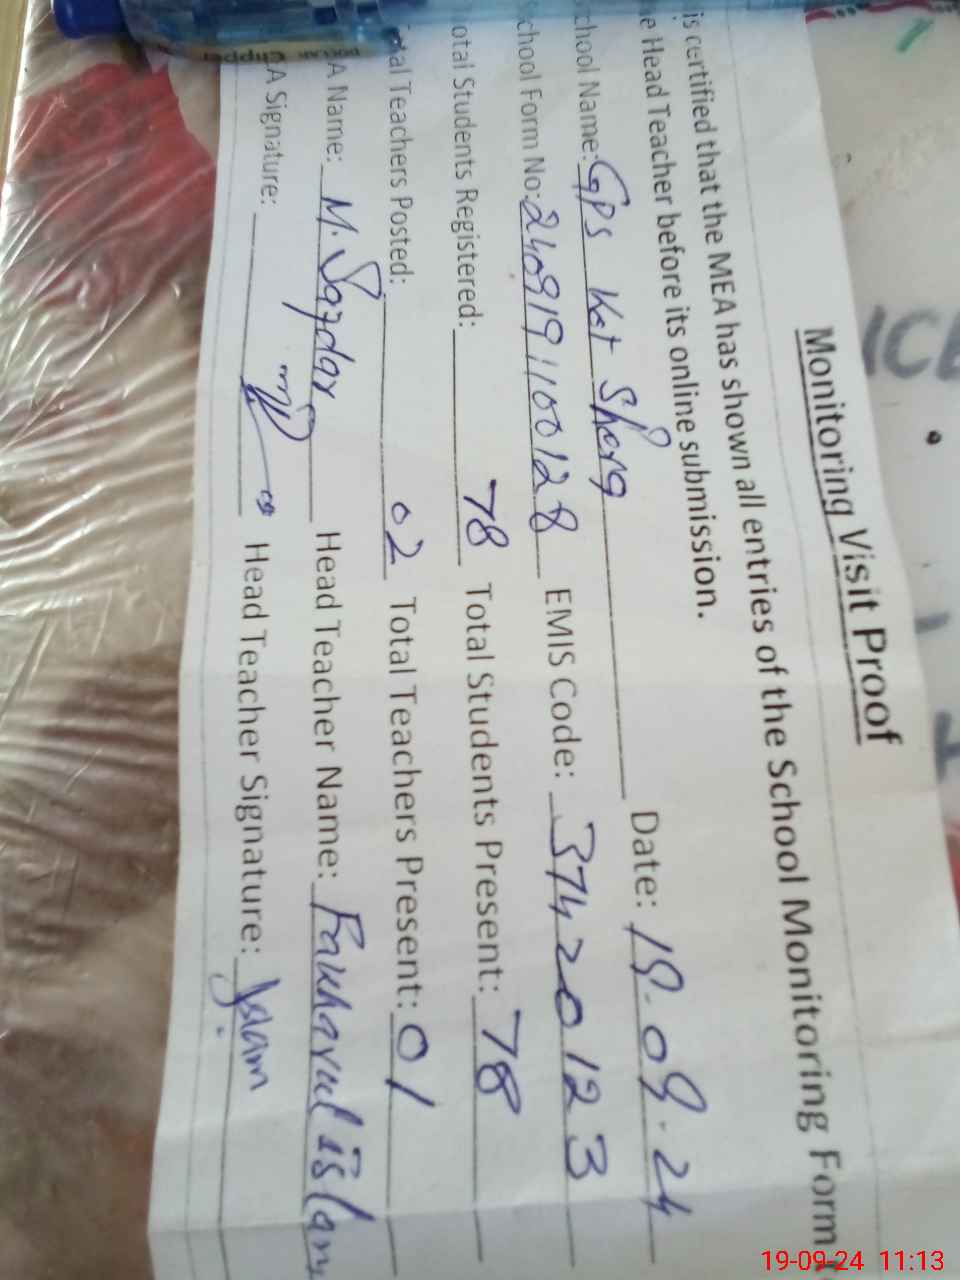 Monitoring Visit Proof
is certified that the MEA has shown all entries of the School Monitoring Form
e Head Teacher before its online submission.
chool Name: GPS Kot Sherq Date: 19.09.24
chool Form No: 2409191100128 EMIS Code: 37420123
otal Students Registered: 78 Total Students Present: 78
al Teachers Posted: 02 Total Teachers Present: 01
A Name: M. Safdar Head Teacher Name: Fakharul islam
A Signature: Head Teacher Signature: Islam
19-09-24 11:13